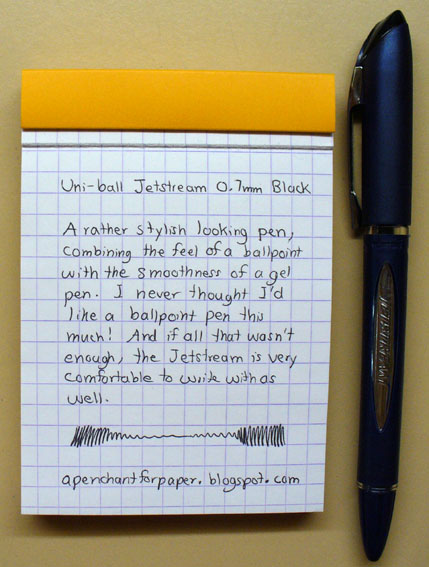 Uni-ball Jetstream 0.7mm Black
A rather stylish looking pen,
combining the feel of a ballpoint
with the smoothness of a gel
pen. I never thought I'd
like a ballpoint pen this
much! And if all that wasn't
enough, the Jetstream is very
comfortable to write with as
well.
apenchantforpaper.blogspot.com
JETSTREAM